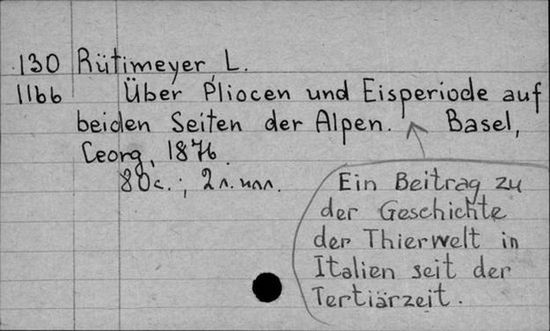 130 Rütimeyer, L.
1166 Über Pliocen und Eisperiode auf
beiden Seiten der Alpen. Basel,
Georg, 1876.
80c.; 2 л. илл.
Ein Beitrag zu
der Geschichte
der Thierwelt in
Italien seit der
Tertiärzeit.